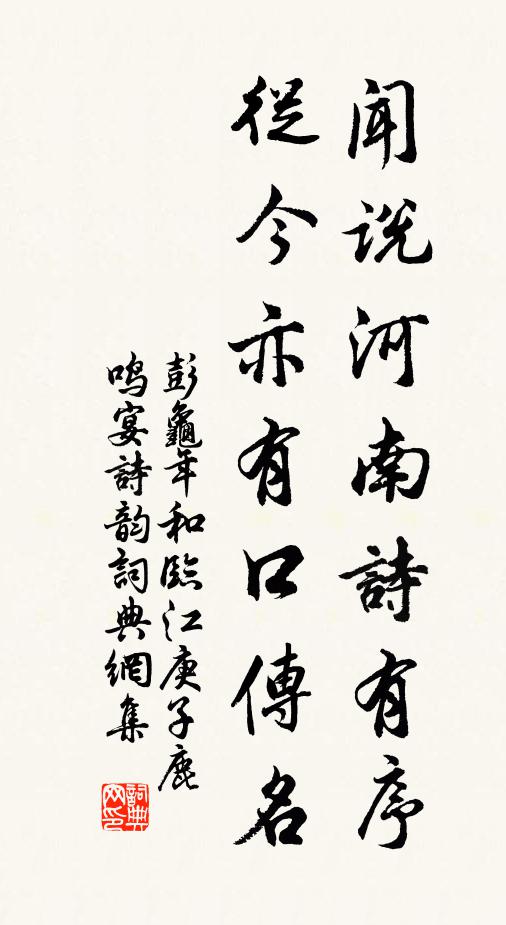 聞説河南詩有序
從今亦有口傳名
彭龜年和臨江庚子鹿
鳴宴詩韵詞典網集
詞典网印